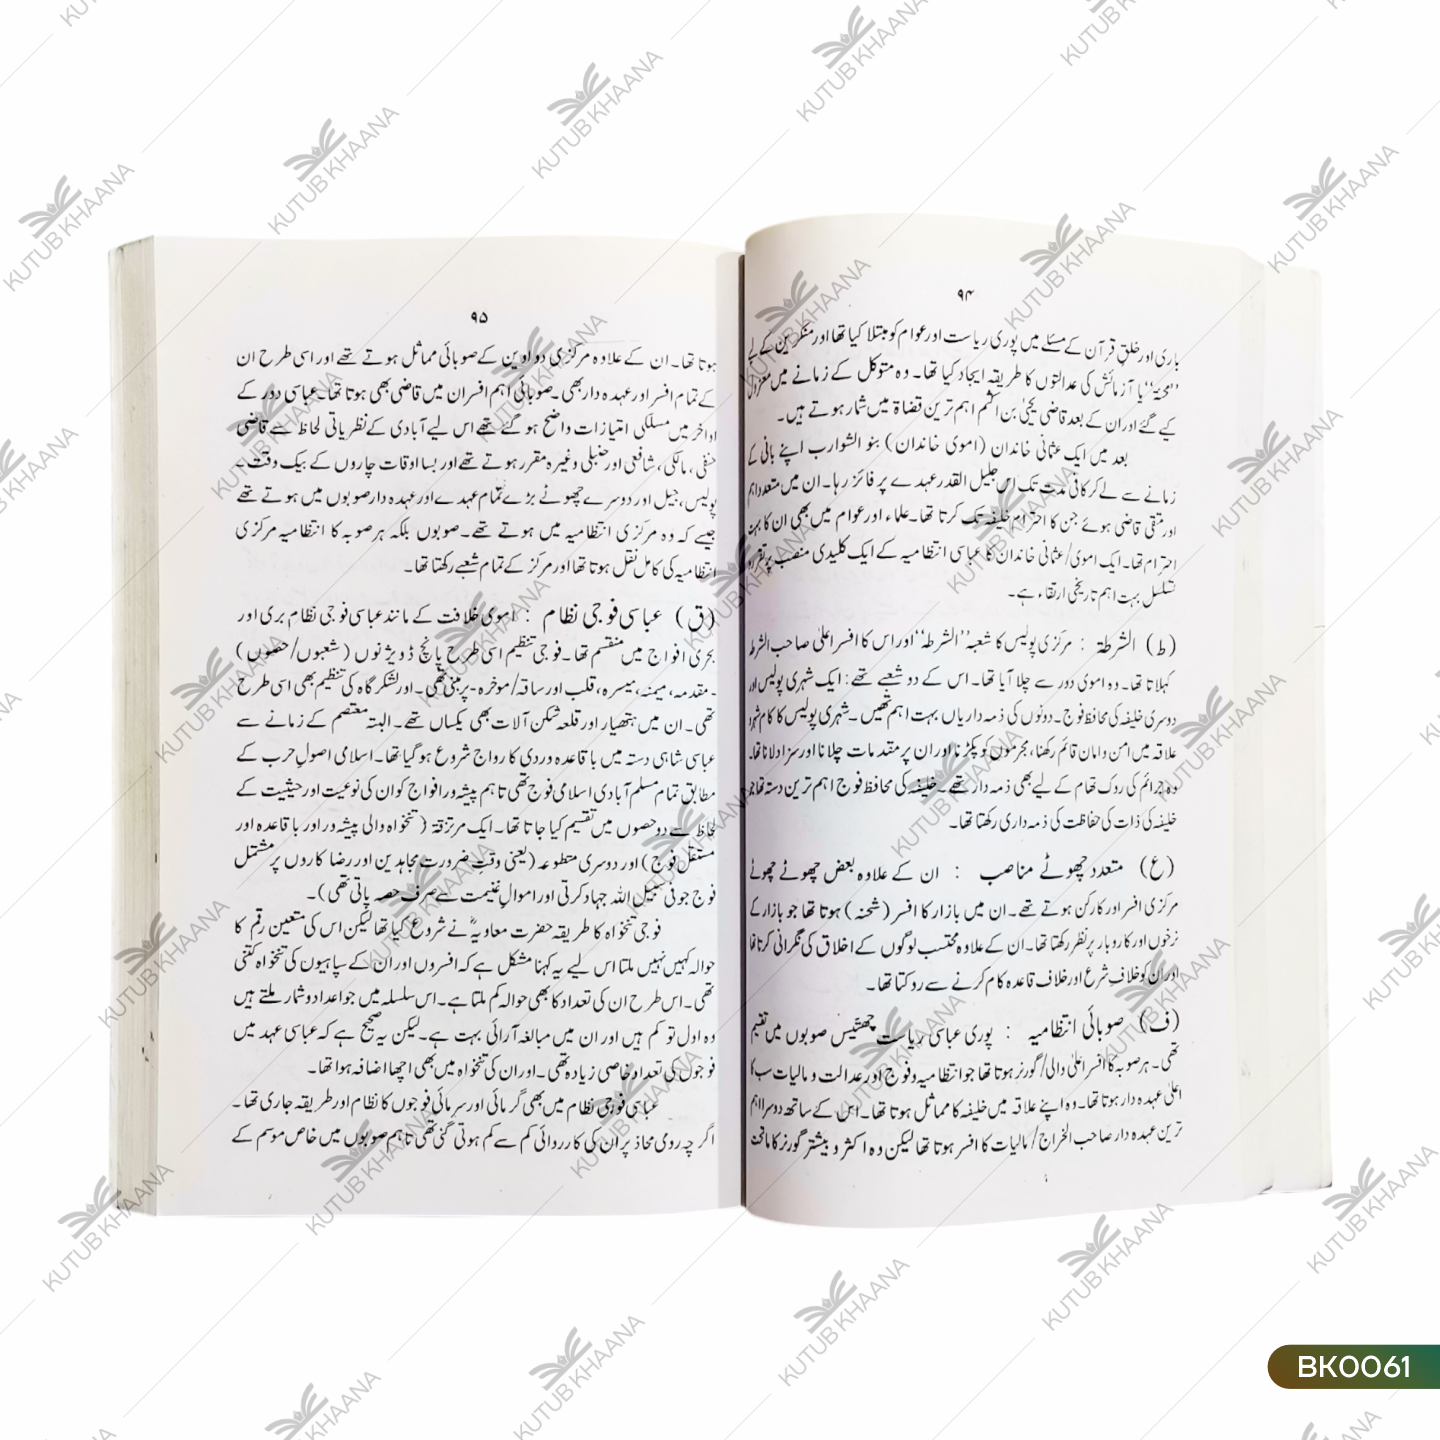 ۹۴
باری اور خلقِ قرآن کے مسئلے میں پوری ریاست اور عوام کو مبتلا کیا تھا اور منکرین کے لیے
"محنۃ" یا آزمائش کی عدالتوں کا طریقہ ایجاد کیا تھا۔ وہ متوکل کے زمانے میں معزول
کیے گئے اور ان کے بعد قاضی یحییٰ بن اکثم اہم ترین قضاۃ میں شمار ہوتے ہیں۔
بعد میں ایک عثمانی خاندان (اموی خاندان) بنو الشوارب اپنے بانی کے
زمانے سے لے کر کافی مدت تک اس جلیل القدر عہدے پر فائز رہا۔ ان میں متعدد اہم
اور متقی قاضی ہوئے جن کا احترام خلیفہ تک کرتا تھا۔ علماء اور عوام میں بھی ان کا بہت
احترام تھا۔ ایک اموی/عثمانی خاندان کا عباسی انتظامیہ کے ایک کلیدی منصب پر تقرر و
تسلسل بہت اہم تاریخی ارتقاء ہے۔
(ط) الشرطۃ : مرکزی پولیس کا شعبہ "الشرطہ" اور اس کا افسر اعلیٰ صاحب الشرطہ
کہلاتا تھا۔ وہ اموی دور سے چلا آیا تھا۔ اس کے دو شعبے تھے: ایک شہری پولیس اور
دوسری خلیفہ کی محافظ فوج۔ دونوں کی ذمہ داریاں بہت اہم تھیں۔ شہری پولیس کا کام شہر و
علاقہ میں امن و امان قائم رکھنا، مجرموں کو پکڑنا اور ان پر مقدمات چلانا اور سزا دلانا تھا۔
وہ جرائم کی روک تھام کے لیے بھی ذمہ دار تھے۔ خلیفہ کی محافظ فوج اہم ترین دستہ تھا جو
خلیفہ کی ذات کی حفاظت کی ذمہ داری رکھتا تھا۔
(ع) متعدد چھوٹے مناصب : ان کے علاوہ بعض چھوٹے چھوٹے
مرکزی افسر اور کارکن ہوتے تھے۔ ان میں بازار کا افسر (شحنہ) ہوتا تھا جو بازار کے
نرخوں اور کاروبار پر نظر رکھتا تھا۔ ان کے علاوہ محتسب لوگوں کے اخلاق کی نگرانی کرتا تھا
اور ان کو خلافِ شرع اور خلاف قاعدہ کام کرنے سے روکتا تھا۔
(ف) صوبائی انتظامیہ : پوری عباسی ریاست چھتیس صوبوں میں تقسیم
تھی۔ ہر صوبہ کا افسر اعلیٰ والی/گورنر ہوتا تھا جو انتظامیہ و فوج اور عدالت و مالیات سب کا
اعلیٰ عہدہ دار ہوتا تھا۔ وہ اپنے علاقہ میں خلیفہ کا مماثل ہوتا تھا۔ اس کے ساتھ دوسرا اہم
ترین عہدہ دار صاحب الخراج/مالیات کا افسر ہوتا تھا لیکن وہ اکثر و بیشتر گورنر کا ماتحت
۹۵
ہوتا تھا۔ ان کے علاوہ مرکزی دواوین کے صوبائی مماثل ہوتے تھے اور اسی طرح ان
کے تمام افسر اور عہدہ دار بھی۔ صوبائی اہم افسران میں قاضی بھی ہوتا تھا۔ عباسی دور کے
اواخر میں مسلکی امتیازات واضح ہو گئے تھے اس لیے آبادی کے نظریاتی لحاظ سے قاضی
حنفی، مالکی، شافعی اور حنبلی وغیرہ مقرر ہوتے تھے اور بسا اوقات چاروں کے بیک وقت۔
پولیس، جیل اور دوسرے چھوٹے بڑے تمام عہدے اور عہدہ دار صوبوں میں ہوتے تھے
جیسے کہ وہ مرکزی انتظامیہ میں ہوتے تھے۔ صوبوں بلکہ ہر صوبہ کا انتظامیہ مرکزی
انتظامیہ کی کامل نقل ہوتا تھا اور مرکز کے تمام شعبے رکھتا تھا۔
(ق) عباسی فوجی نظام : اموی خلافت کے مانند عباسی فوجی نظام بری اور
بحری افواج میں منقسم تھا۔ فوجی تنظیم اسی طرح پانچ ڈویژنوں (شعبوں/حصوں)
۔ مقدمہ، میمنہ، میسرہ، قلب اور ساقہ/موخرہ۔ پر مبنی تھی۔ اور لشکر گاہ کی تنظیم بھی اسی طرح
تھی۔ ان میں ہتھیار اور قلعہ شکن آلات بھی یکساں تھے۔ البتہ معتصم کے زمانے سے
عباسی شاہی دستہ میں باقاعدہ وردی کا رواج شروع ہو گیا تھا۔ اسلامی اصولِ حرب کے
مطابق تمام مسلم آبادی اسلامی فوج تھی تاہم پیشہ ور افواج کو ان کی نوعیت اور حیثیت کے
لحاظ سے دو حصوں میں تقسیم کیا جاتا تھا۔ ایک مرتزقۃ (تنخواہ والی پیشہ ور اور باقاعدہ اور
مستقل فوج) اور دوسری متطوعہ (یعنی وقتِ ضرورت مجاہدین اور رضا کاروں پر مشتمل
فوج جو فی سبیل اللہ جہاد کرتی اور اموالِ غنیمت سے صرف حصہ پاتی تھی)۔
فوجی تنخواہ کا طریقہ حضرت معاویہؓ نے شروع کیا تھا لیکن اس کی متعین رقم کا
حوالہ کہیں نہیں ملتا اس لیے یہ کہنا مشکل ہے کہ افسروں اور ان کے سپاہیوں کی تنخواہ کتنی
تھی۔ اس طرح ان کی تعداد کا بھی حوالہ کم ملتا ہے۔ اس سلسلہ میں جو اعداد و شمار ملتے ہیں
وہ اول تو کم ہیں اور ان میں مبالغہ آرائی بہت ہے۔ لیکن یہ صحیح ہے کہ عباسی عہد میں
فوجوں کی تعداد خاصی زیادہ تھی۔ اور ان کی تنخواہ میں بھی اچھا اضافہ ہوا تھا۔
عباسی فوجی نظام میں بھی گرمائی اور سرمائی فوجوں کا نظام اور طریقہ جاری تھا۔
اگرچہ رومی محاذ پر ان کی کارروائی کم سے کم ہوتی گئی تھی تاہم صوبوں میں خاص موسم کے
KUTUB KHAANA
BK0061